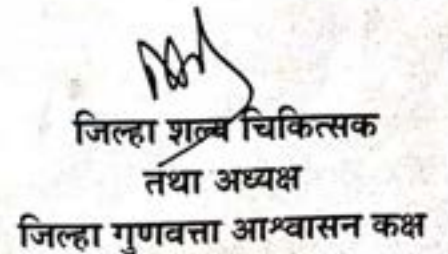 जिल्हा शल्य चिकित्सक
तथा अध्यक्ष
जिल्हा गुणवत्ता आश्वासन कक्ष